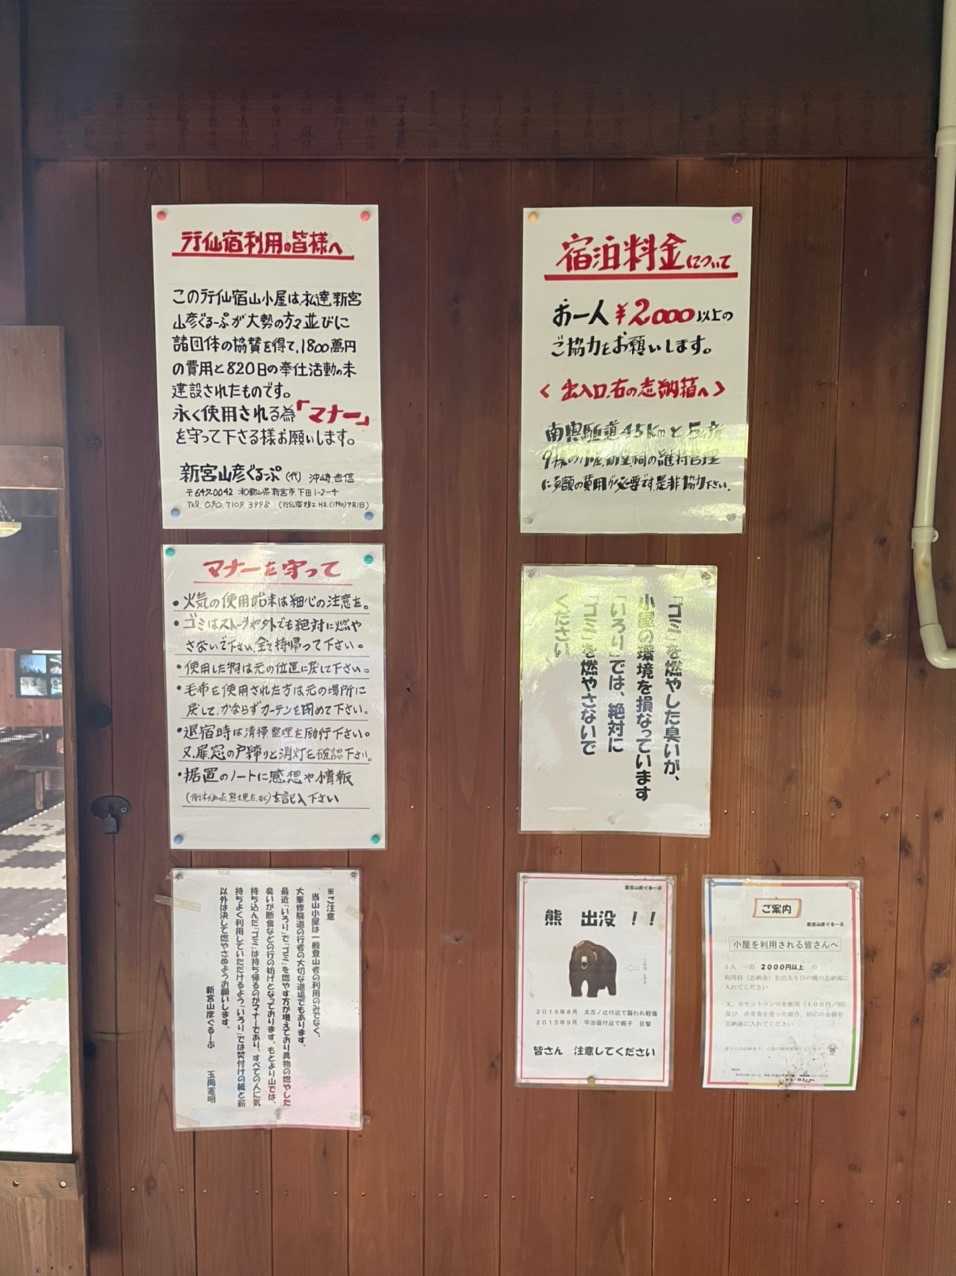 行仙宿利用の皆様へ
この行仙宿山小屋は私達新宮
山彦ぐるーぷが大勢の方々並びに
諸団体の協賛を得て、1800萬円
の費用と820日の奉仕活動の末
建設されたものです。
永く使用される為「マナー」
を守って下さる様お願いします。
新宮山彦ぐるーぷ (代) 沖崎吉信
〒647-0042 和歌山県新宮市下田1-2-
TEL 090.7109.3998
宿泊料金について
お一人 ¥2000以上の
ご協力をお願いします。
< 出入口右の志納箱へ >
南奥駈道45kmと
の維持管理
に多額の費用が必要です是非協力下さい。
マナーを守って
•火気の使用始末は細心の注意を。
•ゴミはストーブや外でも絶対に燃や
さないで下さい、全て持帰って下さい。
•使用した物は元の位置に戻して下さい。
•毛布を使用された方は元の場所に
戻して、かならずカーテンを閉めて下さい。
•退宿時は清掃整理を励行下さい。
又、扉、窓の戸締りと消灯を確認下さい。
•据置のノートに感想や情報
を記入下さい
「ゴミ」を燃やした臭いが、
小屋の環境を損なっています
「いろり」では、絶対に
「ゴミ」を燃やさないで
ください
※ご注意
当山小屋は一般登山者の利用のみでなく、
大峯修験道の行者の大切な道場でもあります。
最近「いろり」で「ゴミ」を燃やす方が増えており異物の燃やした
臭いが断食などの行の妨げとなっております。もとより山では、
持ち込んだ「ゴミ」は持ち帰るのがマナーであり、すべての人に気
持ちよく利用していただけるよう「いろり」では焚付けの紙と薪
以外は決して燃やさぬようお願いします。
新宮山彦ぐるーぷ 玉岡憲明
新宮山彦ぐるーぷ
熊 出没 !!
皆さん 注意してください
ご案内
新宮山彦ぐるーぷ
小屋を利用される皆さんへ
1人 一泊 2000円以上 の